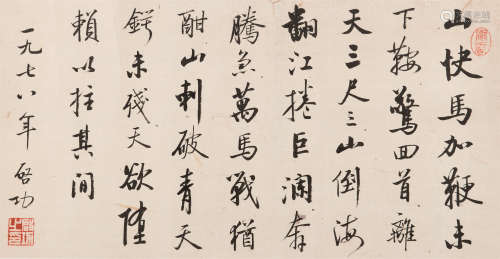 山快馬加鞭未
下鞍驚回首離
天三尺三山倒海
翻江捲巨瀾奔
騰急萬馬戰猶
酣山刺破青天
鍔未殘天欲墮
賴以拄其間
一九七八年 啓功